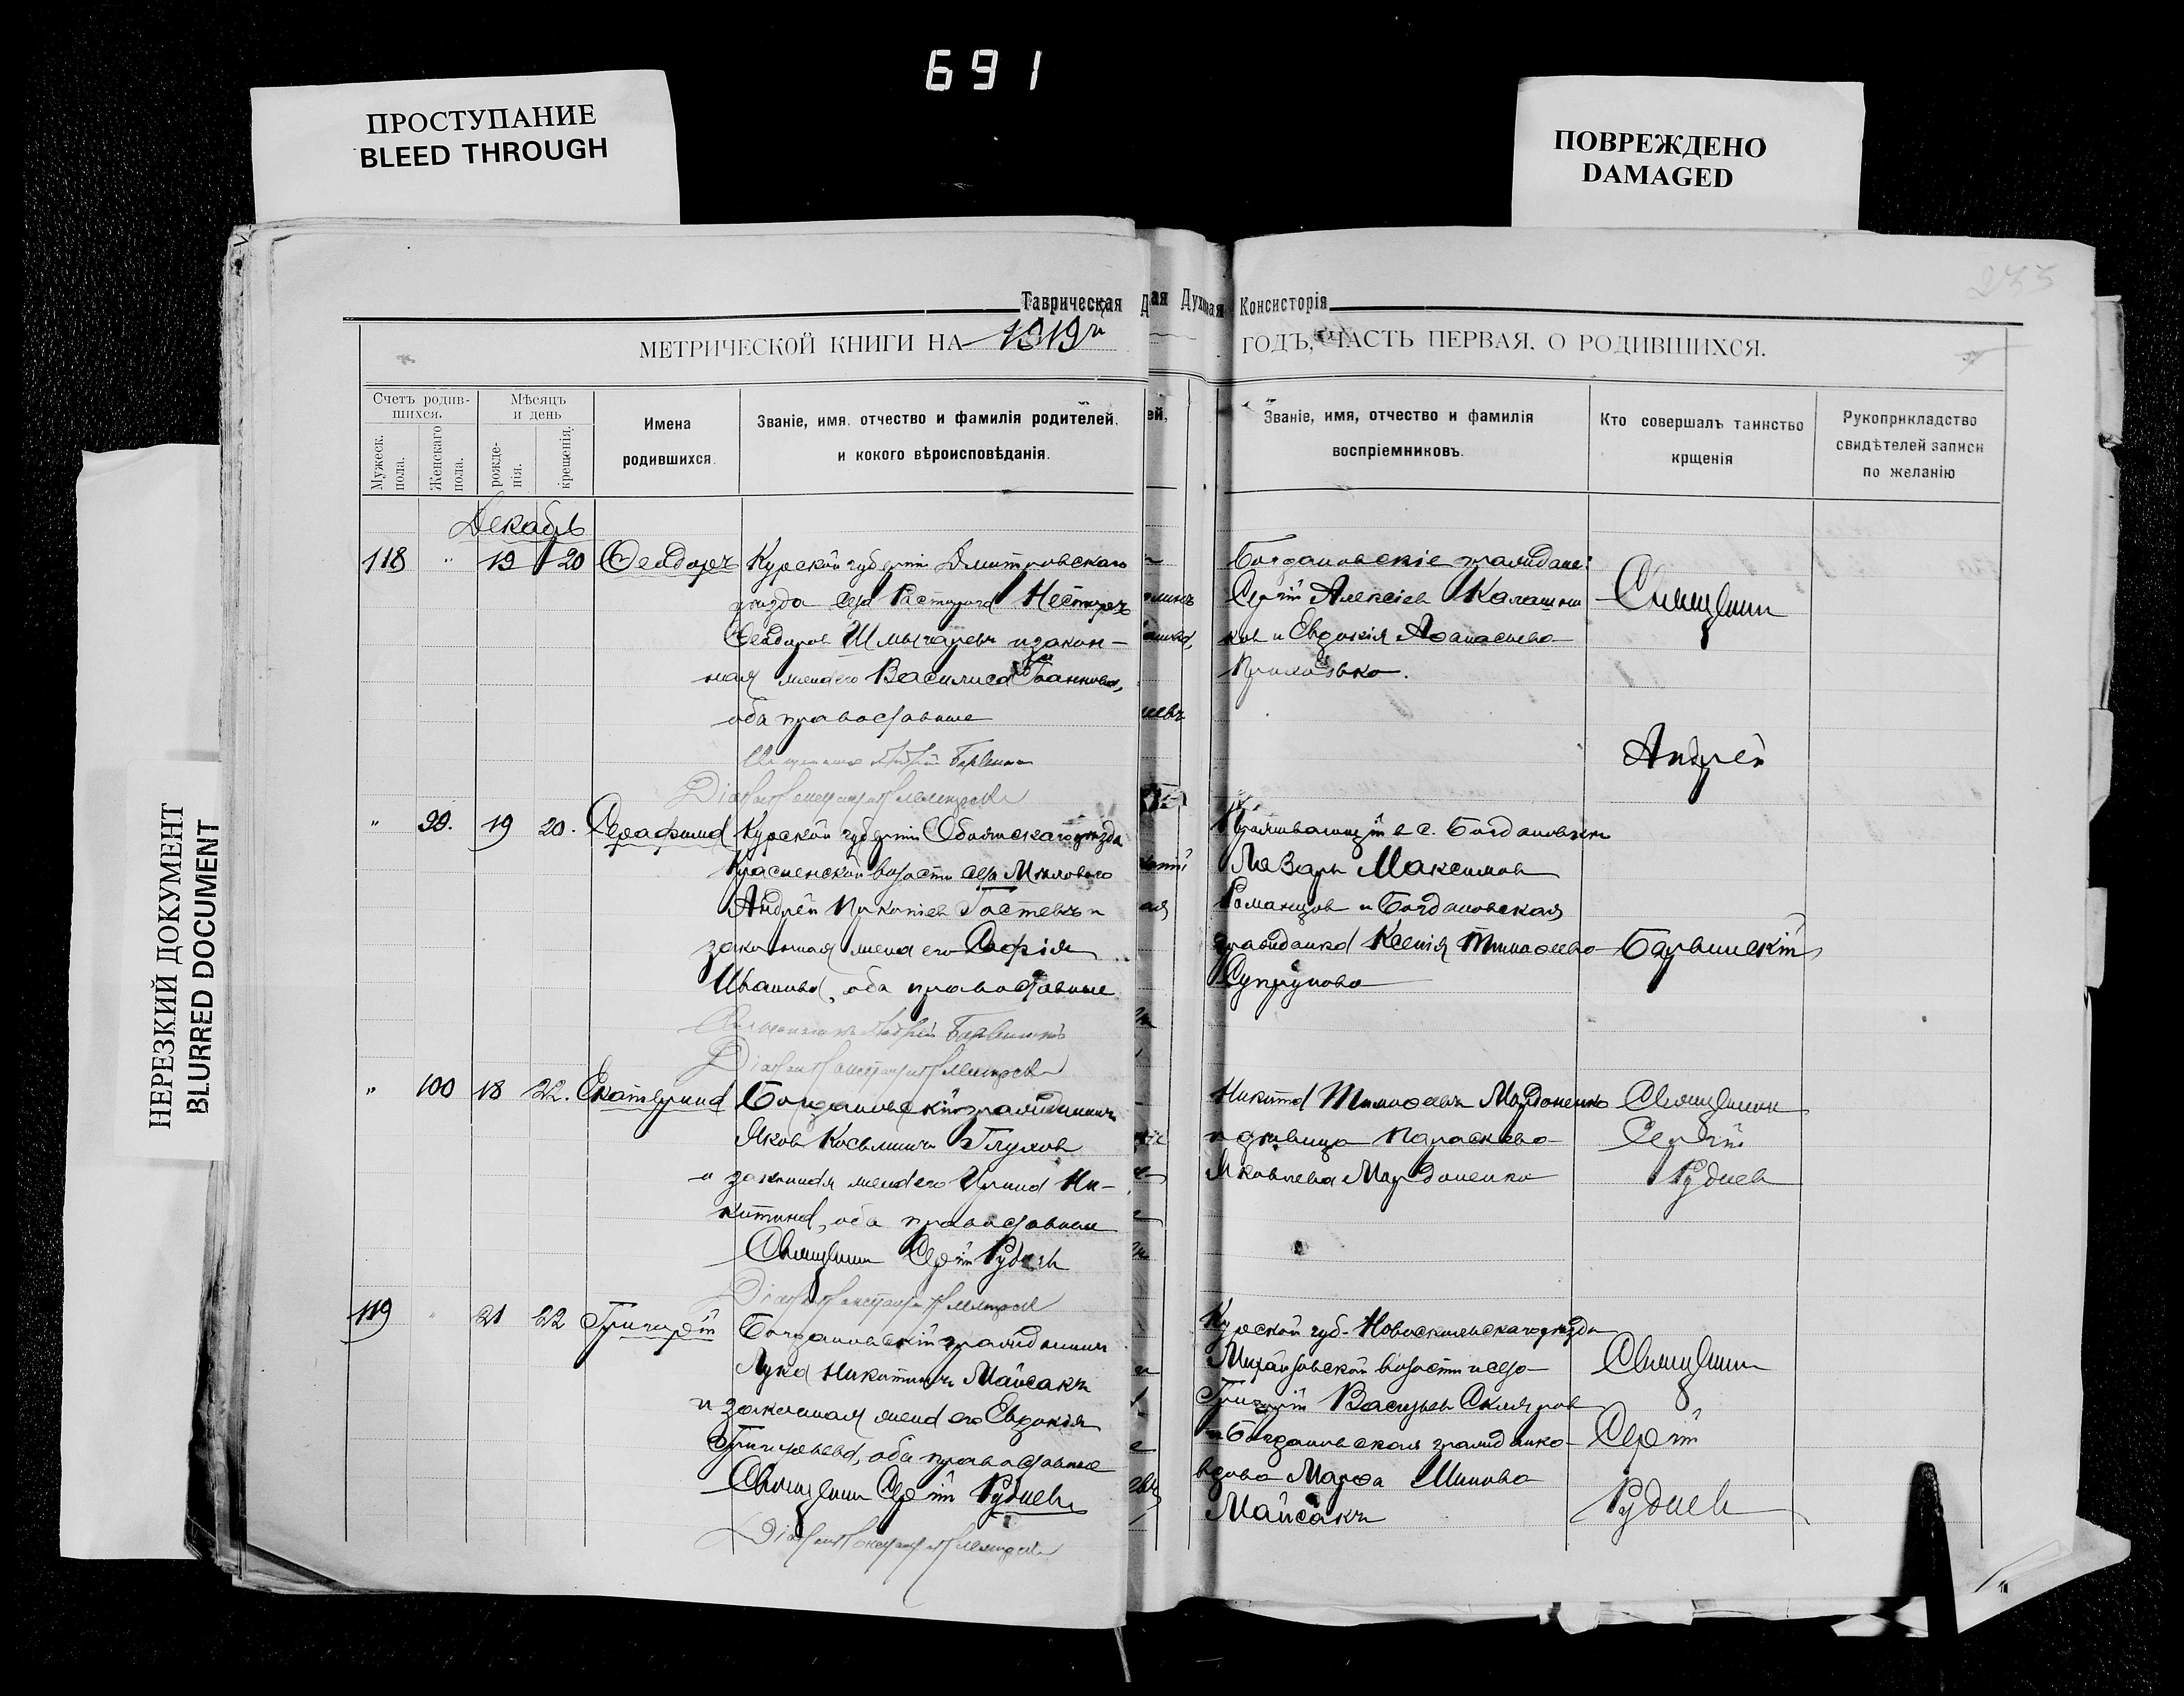 691
ПРОСТУПАНИЕ
BLEED THROUGH
ПОВРЕЖДЕНО
DAMAGED
НЕРЕЗКИЙ ДОКУМЕНТ
BLURRED DOCUMENT
Таврическая Духовная Консисторія
МЕТРИЧЕСКОЙ КНИГИ НА 1919 г
ГОДЪ, ЧАСТЬ ПЕРВАЯ, О РОДИВШИХСЯ.
Счетъ родив-
шихся.
Мужеск.
пола.
Женскаго
пола.
Мѣсяцъ
и день
рожде-
нія.
крещенія.
Имена
родившихся.
Званіе, имя, отчество и фамилія родителей,
и кокого вѣроисповѣданія.
Званіе, имя, отчество и фамилія
воспріемниковъ.
Кто совершалъ таинство
крщенія
Рукоприкладство
свидѣтелей записи
по желанію
Декабль
118 " 19 20 Ѳеодоръ
Курской губерніи Дмитровскаго
уѣзда села Нестеръ
Ѳеодоровъ Шмыгаревъ и закон-
ная жена его Василиса Іоаннова,
оба православные
Священникъ Андрей Барвинскій
Богдановскіе граждане:
Сергій Алексіев Калашни
ков и Евдокія Аѳанасиева
Приходько.
Священник
Андрей
Барвинскій
" 99. 19 20. Серафима
Курской губерніи Обоянскаго уѣзда
Красненской волости села
Андрей Прокопіев Гостевъ и
законная жена его Софія
Иванова, оба православные
Священникъ Андрей Барвинскій
Проживающій в с. Богдановки
Лазарь Максимов
Романцов и Богдановская
гражданка Ксенія Тимоѳеева
Супрунова
" 100 18 22. Екатерина
Богдановскій гражданинъ
Яков Косьмичъ Глухов
и законная жена его Ирина Ни-
китина, оба православные
Священник Сергій Руднев
Никита Тимоѳеевъ Мардоненко
и дѣвица Параскева
Яковлева Мардоненко
Священник
Сергій
Руднев
119 " 21 22 Григорій
Богдановскій гражданинъ
Лука Никитичъ Майсакъ
и законная жена его Евдокія
Григорьева, оба православные
Священник Сергій Руднев
Курской губ. Новооскольскаго уѣзда
Михайловской волости и села
Григорій Васильев Скляров
и Богдановская гражданка
вдова Марѳа Минова
Майсакъ
Священник
Сергій
Руднев